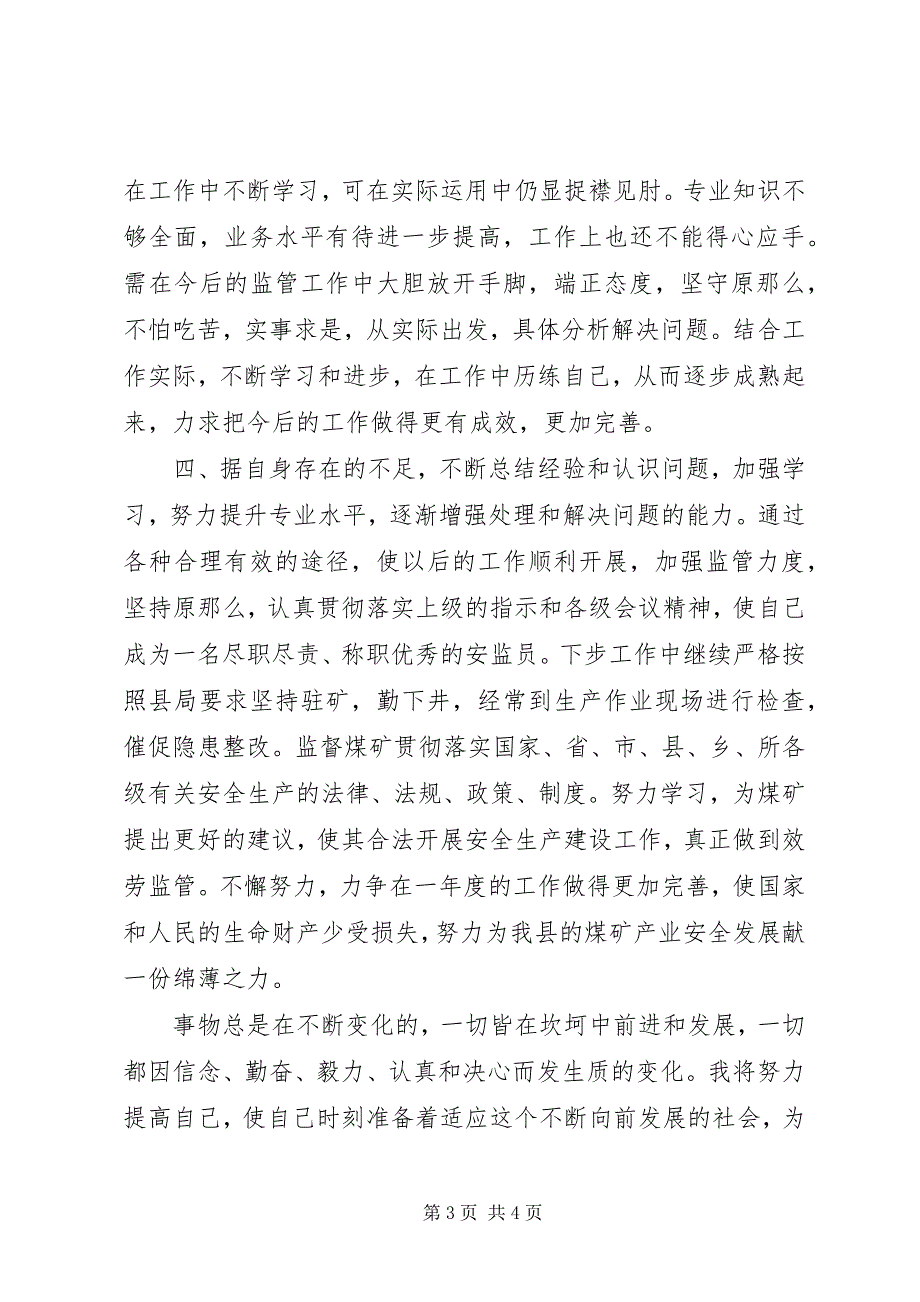 在工作中不断学习，可在实际运用中仍显捉襟见肘。专业知识不
够全面，业务水平有待进一步提高，工作上也还不能得心应手。
需在今后的监管工作中大胆放开手脚，端正态度，坚守原那么，
不怕吃苦，实事求是，从实际出发，具体分析解决问题。结合工
作实际，不断学习和进步，在工作中历练自己，从而逐步成熟起
来，力求把今后的工作做得更有成效，更加完善。
四、据自身存在的不足，不断总结经验和认识问题，加强学
习，努力提升专业水平，逐渐增强处理和解决问题的能力。通过
各种合理有效的途径，使以后的工作顺利开展，加强监管力度，
坚持原那么，认真贯彻落实上级的指示和各级会议精神，使自己
成为一名尽职尽责、称职优秀的安监员。下步工作中继续严格按
照县局要求坚持驻矿，勤下井，经常到生产作业现场进行检查，
催促隐患整改。监督煤矿贯彻落实国家、省、市、县、乡、所各
级有关安全生产的法律、法规、政策、制度。努力学习，为煤矿
提出更好的建议，使其合法开展安全生产建设工作，真正做到效
劳监管。不懈努力，力争在一年度的工作做得更加完善，使国家
和人民的生命财产少受损失，努力为我县的煤矿产业安全发展献
一份绵薄之力。
事物总是在不断变化的，一切皆在坎坷中前进和发展，一切
都因信念、勤奋、毅力、认真和决心而发生质的变化。我将努力
提高自己，使自己时刻准备着适应这个不断向前发展的社会，为
第 3 页 共 4 页